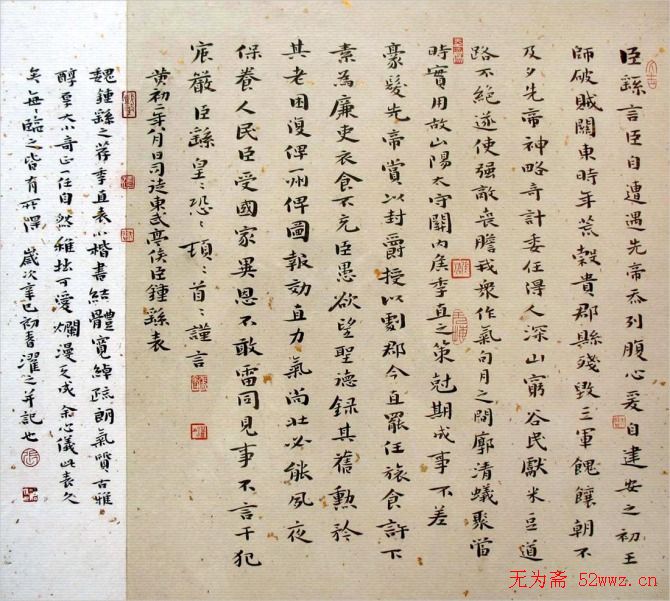 臣繇言臣自遭遇先帝忝列腹心爰自建安之初王
師破賊關東時年荒穀貴郡縣殘毀三軍餽饟朝不
及夕先帝神略奇計委任得人深山窮谷民獻米豆道
路不絕遂使强敵喪膽我衆作氣旬月之間廓清蟻聚當
時實用故山陽太守關内侯季直之策尅期成事不差
豪髮先帝賞以封爵授以劇郡今直罷任旅食許下
素為廉吏衣食不充臣愚欲望聖德錄其舊勳矜
其老困復俾一州俾圖報効直力氣尚壯必能夙夜
保養人民臣受國家異恩不敢雷同見事不言干犯
宸嚴臣繇皇:恐:頓:首:謹言
黄初二年八月日司徒東武亭侯臣鍾繇表
魏鍾繇之荐季直表小楷書結體寬綽疏朗氣質古雅
醇厚大小奇正一任自然雅拙可愛爛漫天成余心儀此表久
矣每臨之皆有所得 歲次辛巳初春濯之并記也
无为斋 52wwz.cn